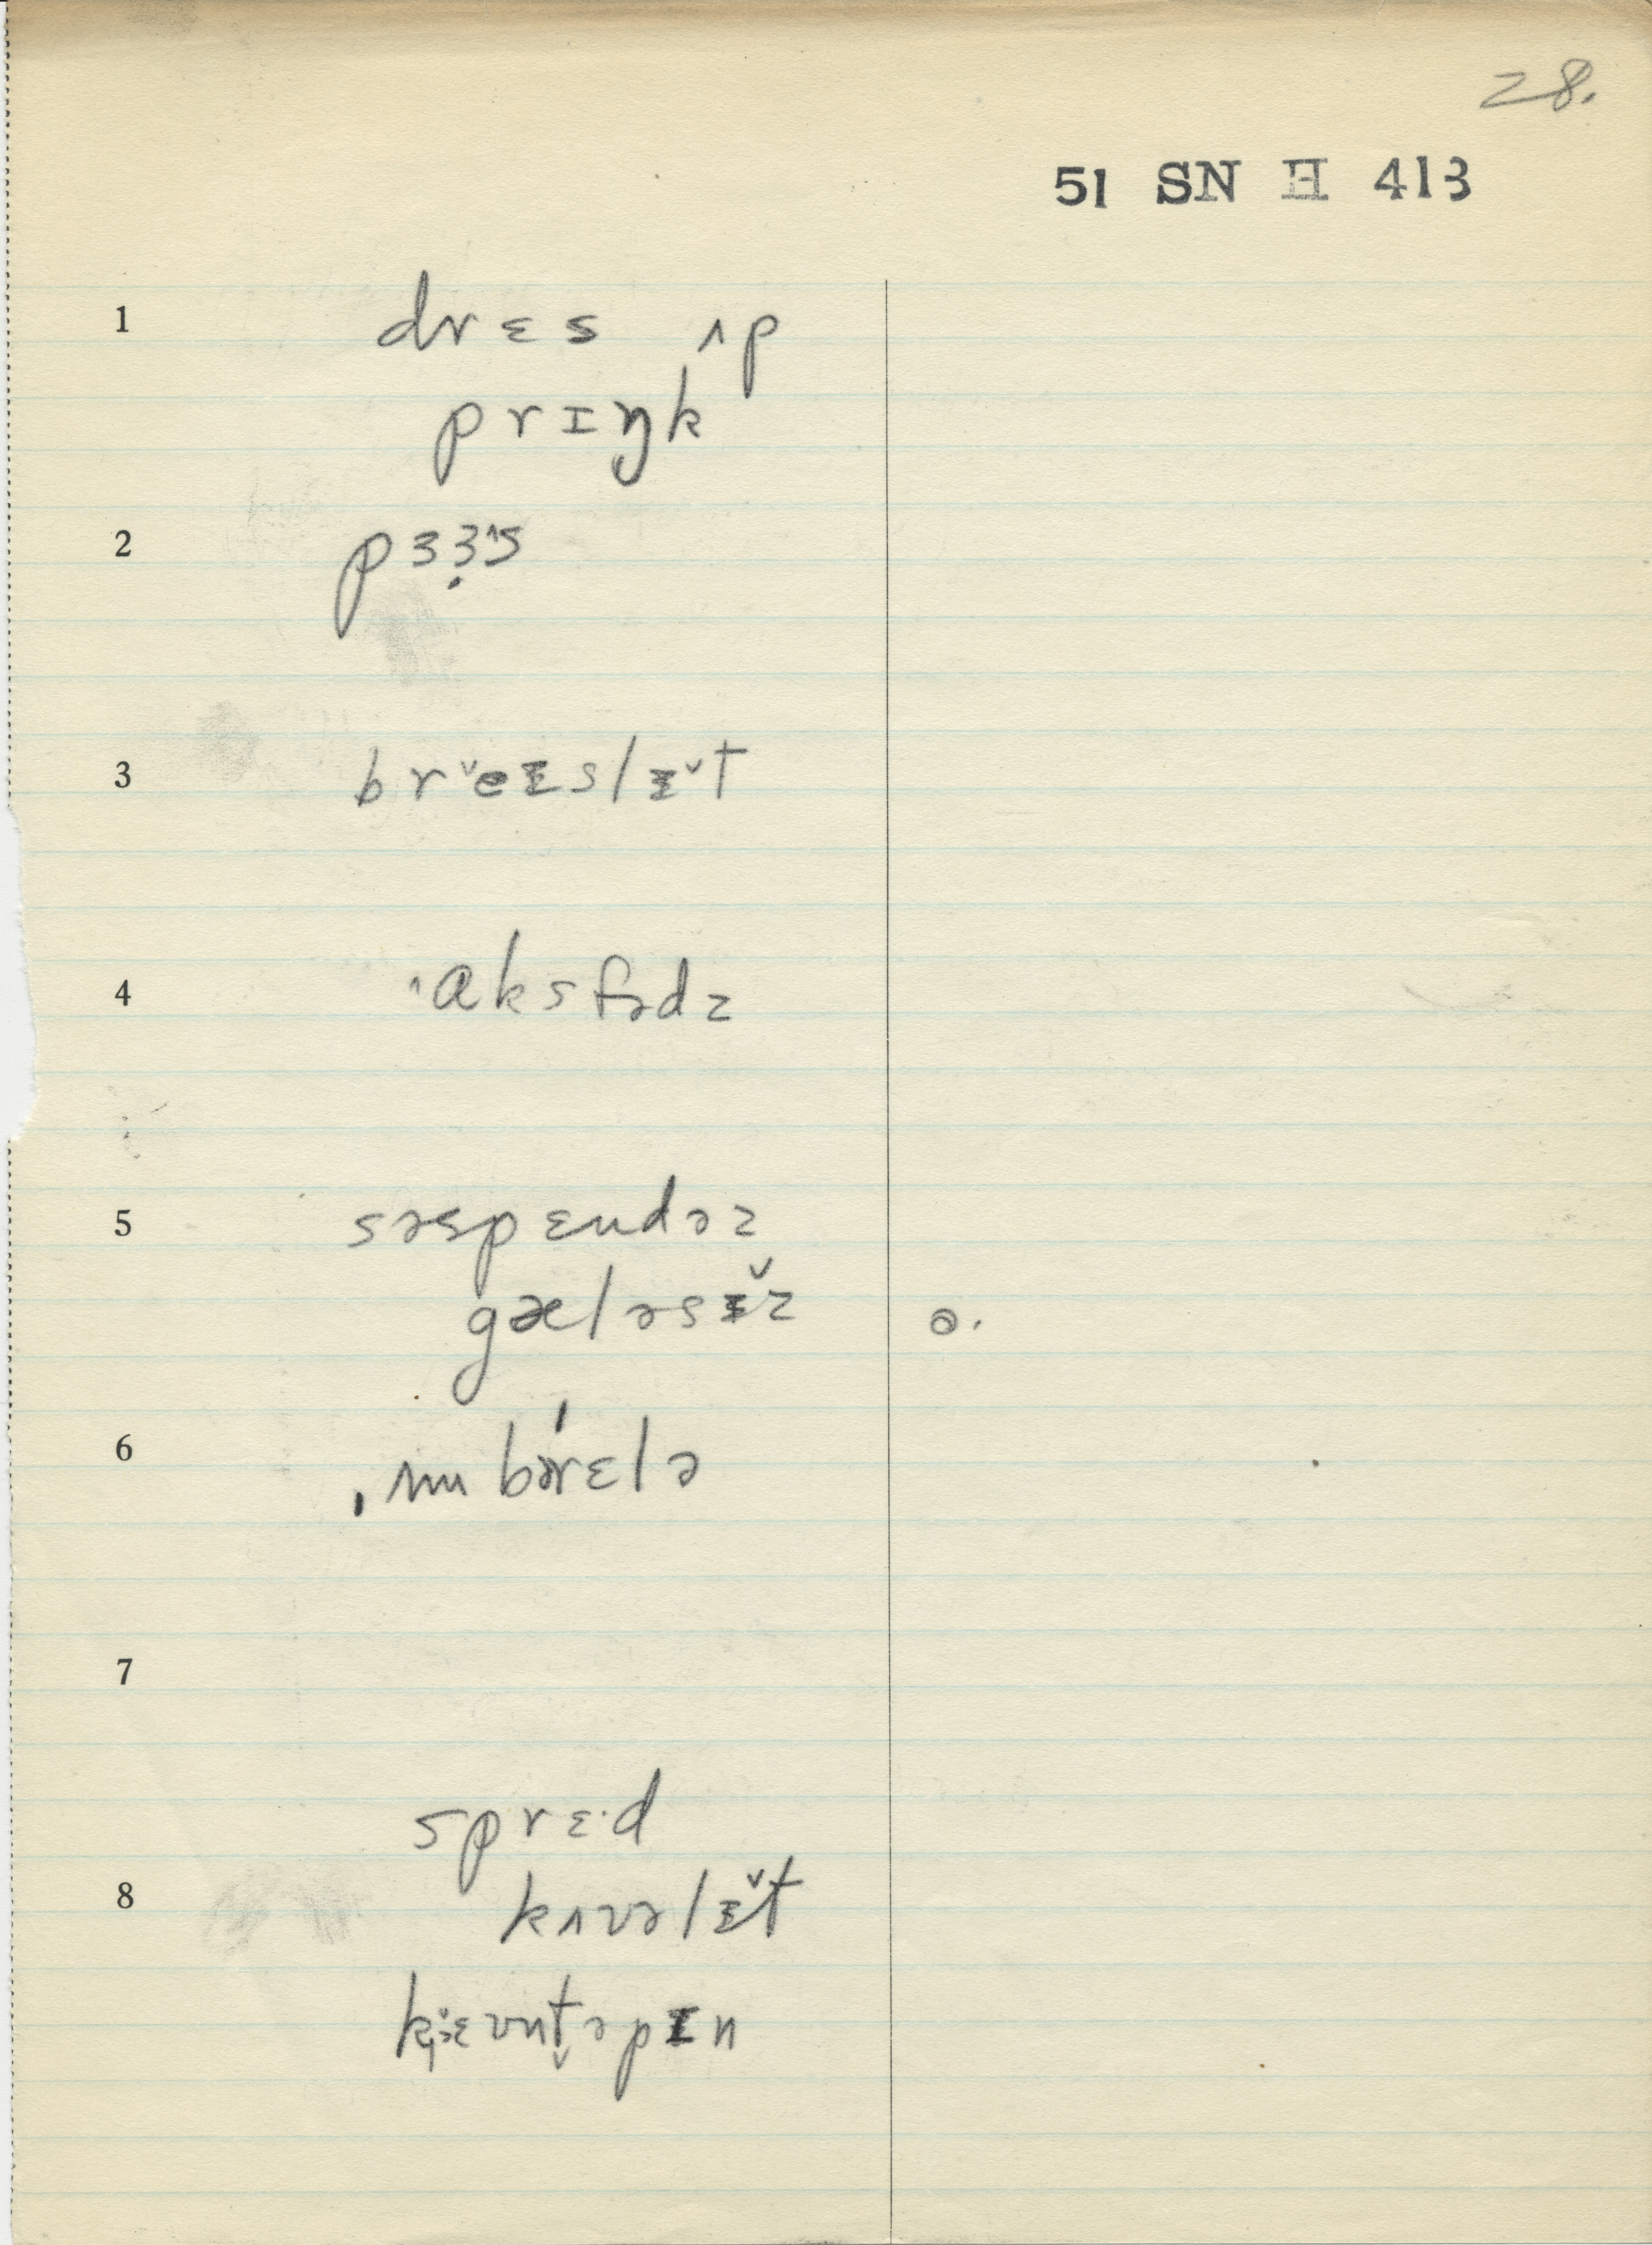 28.
51 SN H 413
1 drɛs ʌp
prɪŋk
2 pɜɜ̣˄s
3 br˅eɪslɪ˅t
4 ˄aksfədz
5 səspɛndəz
gæləsɪ̌z ə.
6 ˌʌmbəˈrɛlə
7
sprɛ·d
8 kʌvəlɪ̌t
kaʊntəpɪn